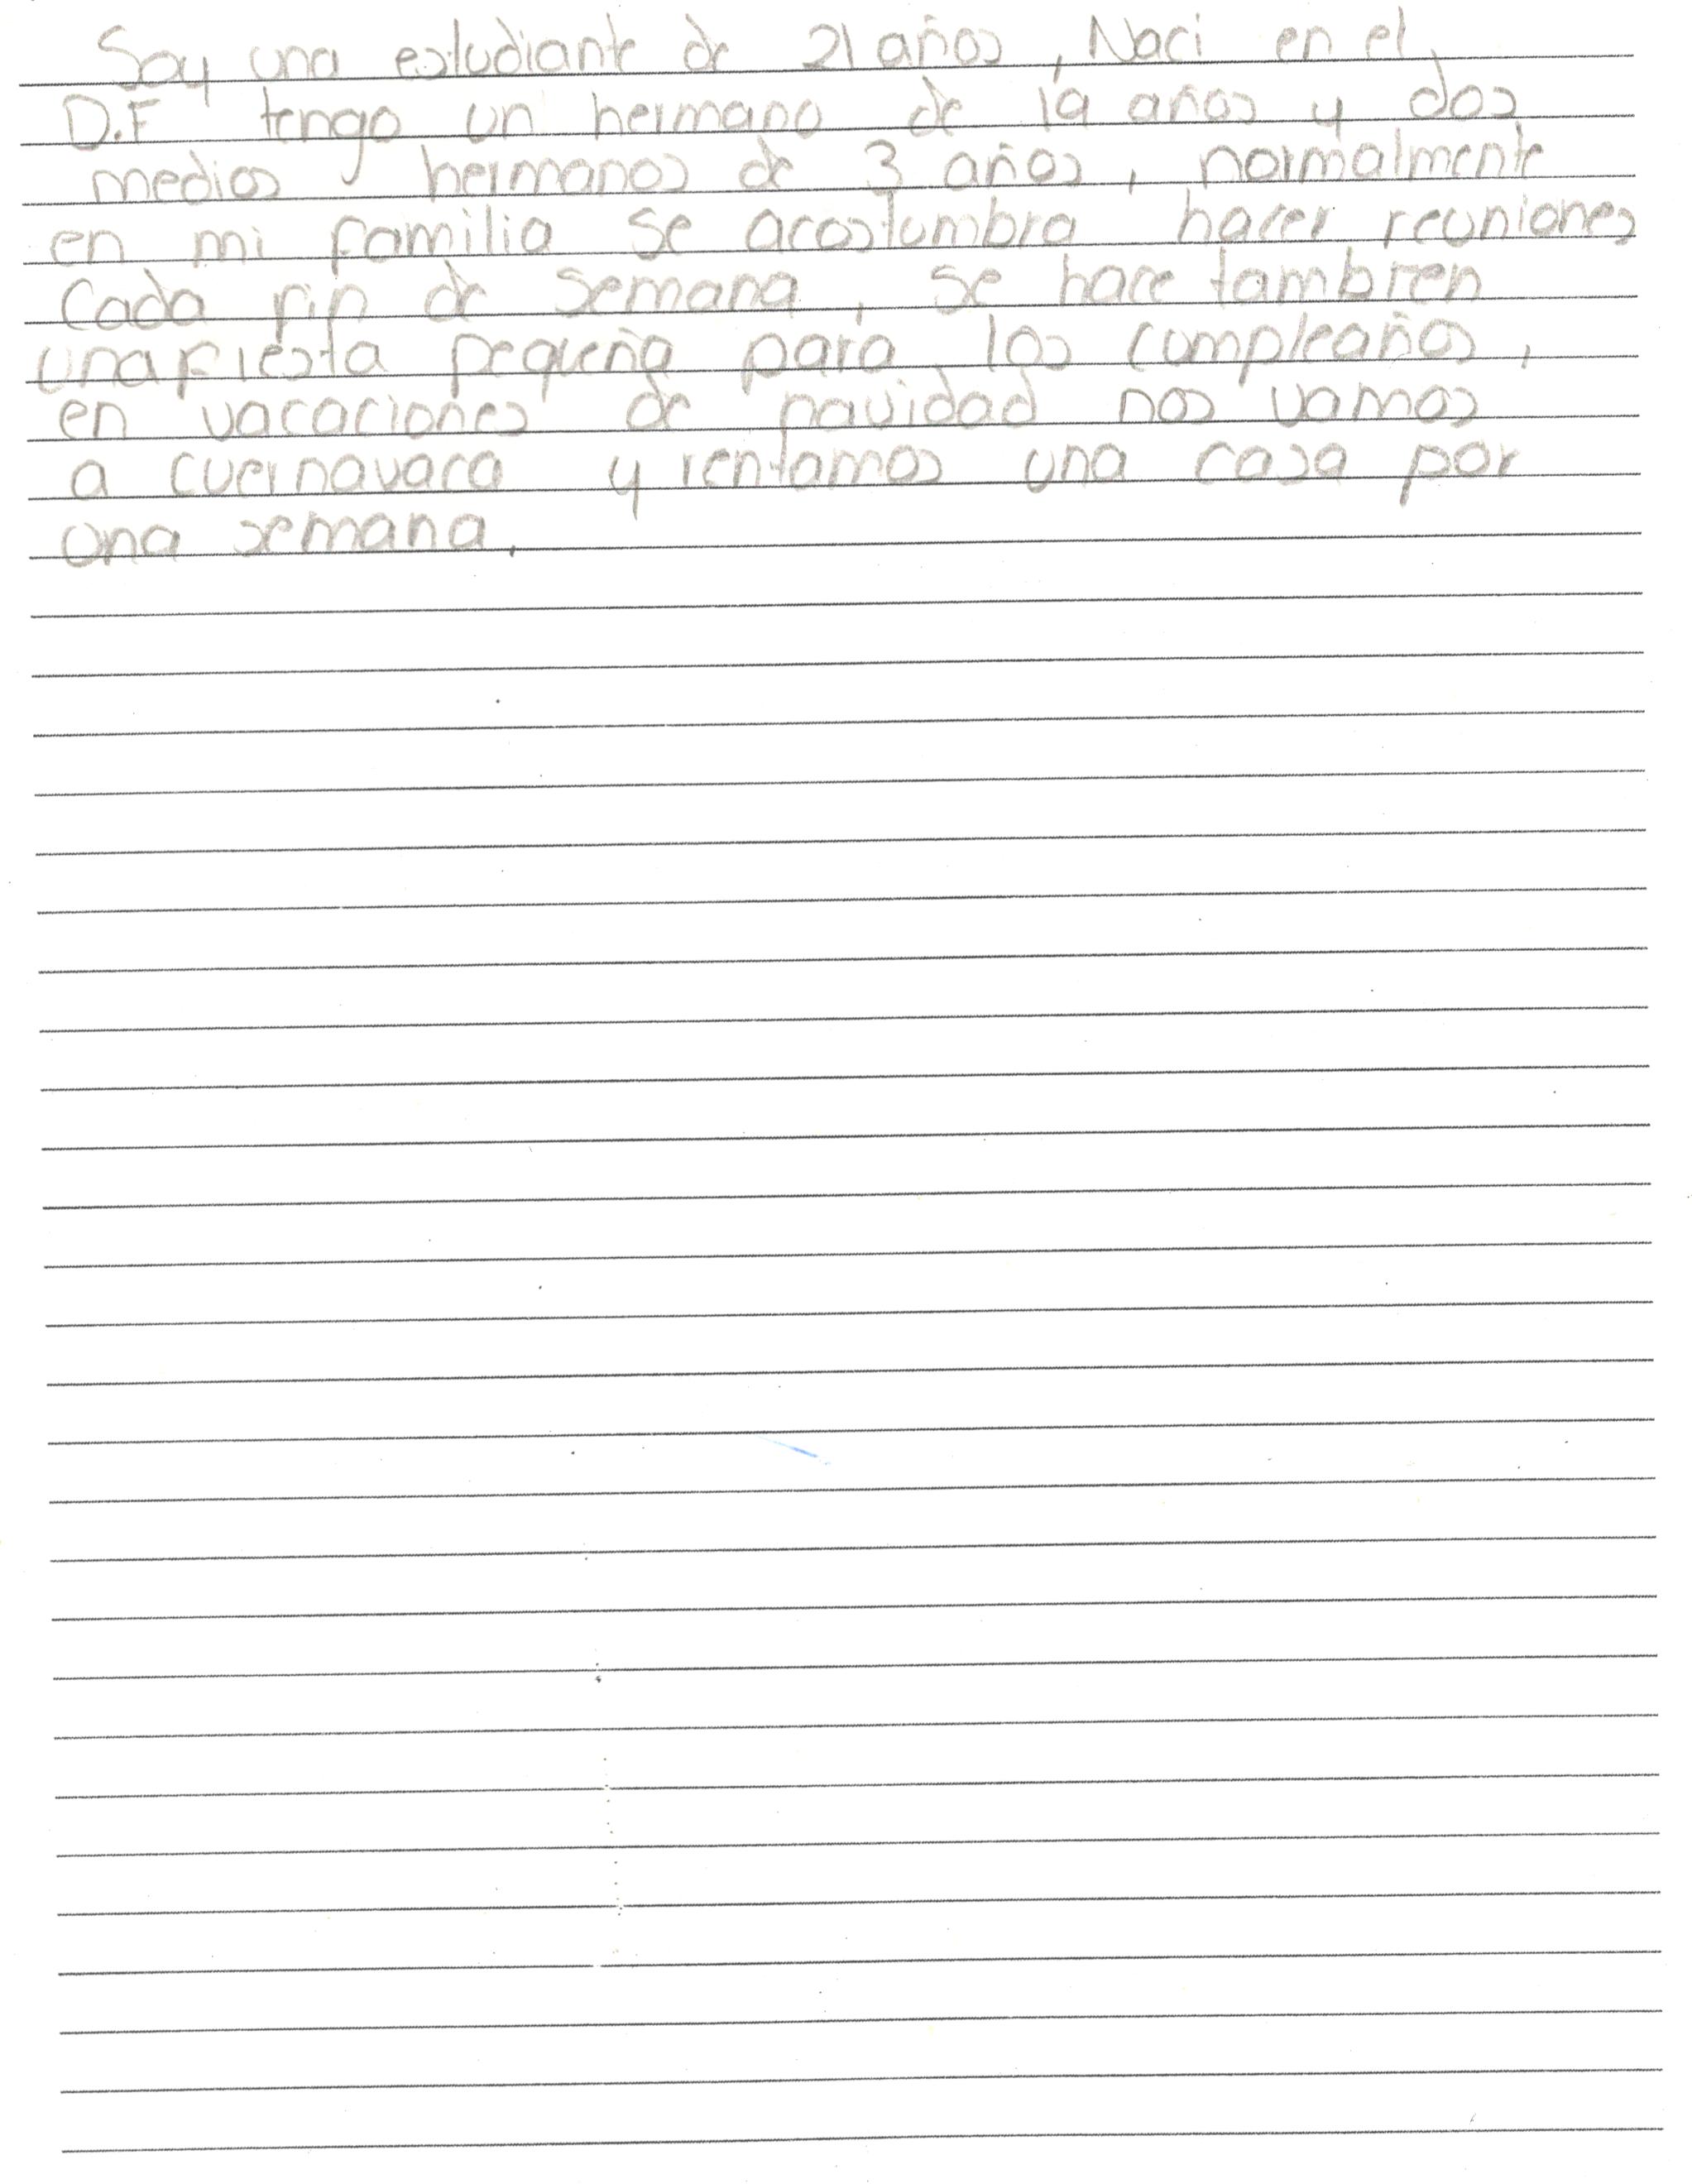 Soy una estudiante de 21 años, Naci en el
D.F tengo un hermano de 19 años y dos
medios hermanos de 3 años, normalmente
en mi familia se acostumbra hacer reuniones
Cada fin de semana, se hace tambien
una fiesta pequeña para los cumpleaños,
en vacaciones de navidad nos vamos
a cuernavaca y rentamos una casa por
una semana.